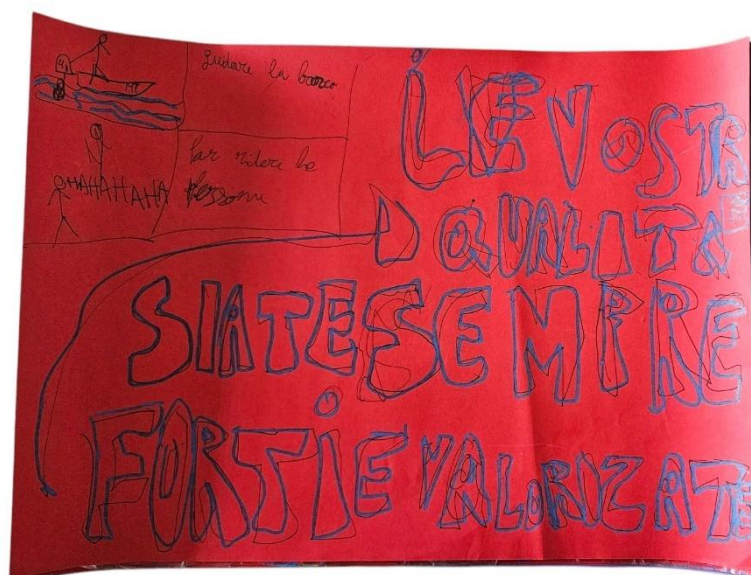 guidare la barca
far ridere le
persone
HAHAHAHA
LE VOSTR
QUALITA
SIATE SEMPRE
FORTI E VALORIZATE